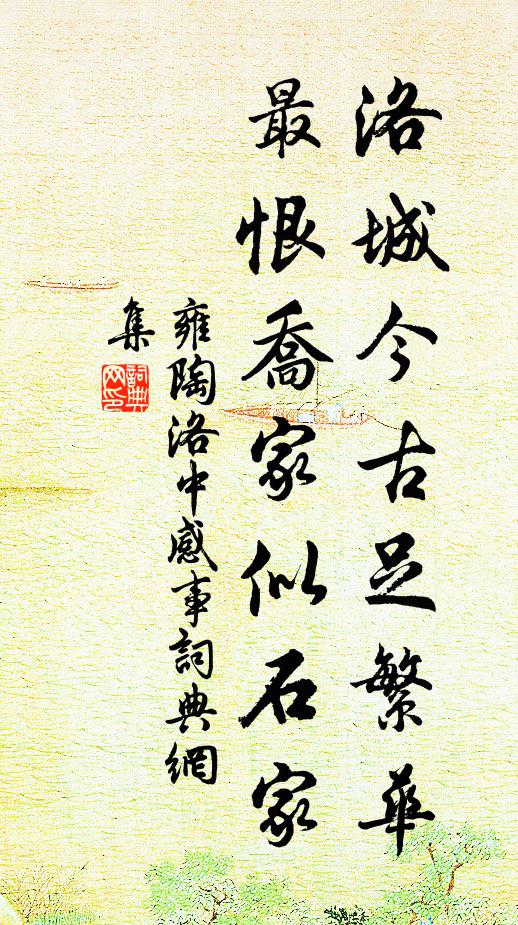 洛城今古足繁華
最恨喬家似石家
雍陶洛中感事詞典網
集
詞典
网印